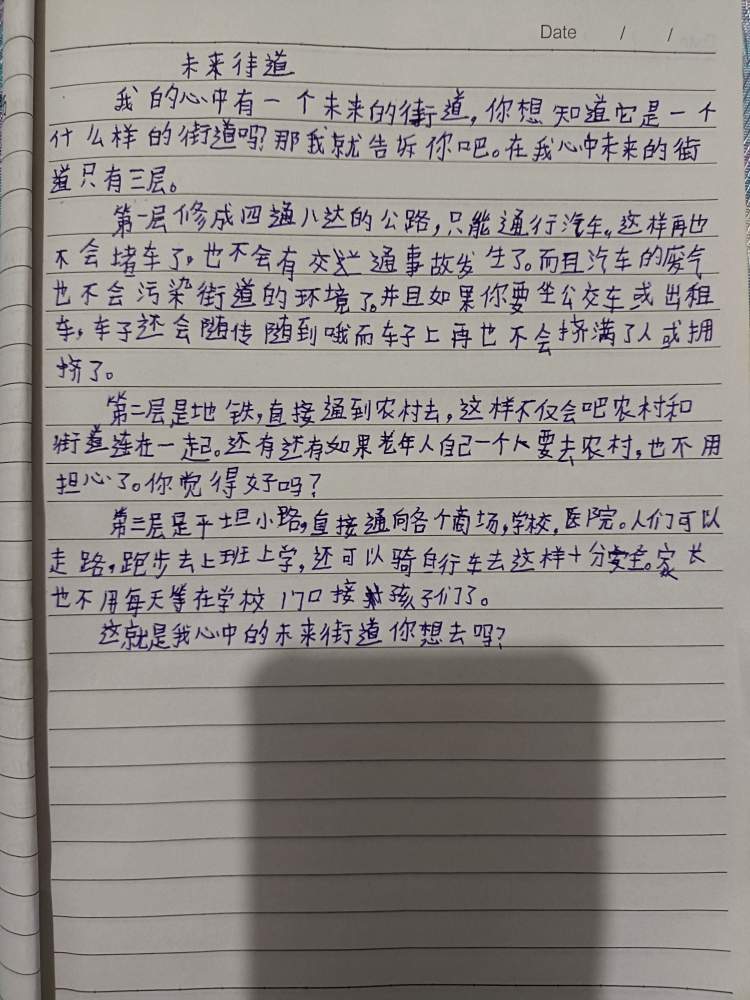 Date / /
未来街道
我的心中有一个未来的街道,你想知道它是一个
什么样的街道吗?那我就告诉你吧。在我心中未来的街
道只有三层。
第一层修成四通八达的公路,只能通行汽车。这样再也
不会堵车了,也不会有交通事故发生了。而且汽车的废气
也不会污染街道的环境了。并且如果你要坐公交车或出租
车,车子还会随传随到哦而车子上再也不会挤满了人或拥
挤了。
第二层是地铁,直接通到农村去,这样不仅会吧农村和
街道连在一起。还有还有如果老年人自己一个人要去农村,也不用
担心了。你觉得好吗?
第三层是平坦小路,直接通向各个商场,学校,医院。人们可以
走路,跑步去上班上学,还可以骑自行车去这样十分安全。家长
也不用每天等在学校门口接孩子们了。
这就是我心中的未来街道你想去吗?